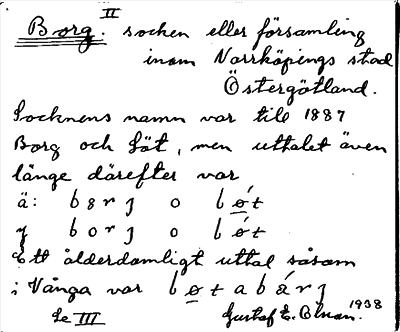 II
Borg. socken eller församling
inom Norrköpings stad
Östergötland.
Socknens namn var till 1887
Borg och Löt, men uttalet även
länge därefter var
ä: b o r j o l ǿ t
y b o r j o l ǿ t
Ett ålderdomligt uttal såsom
i Vånga var l ø t a b á r j
Se III Gustaf E. Olsson. 1938